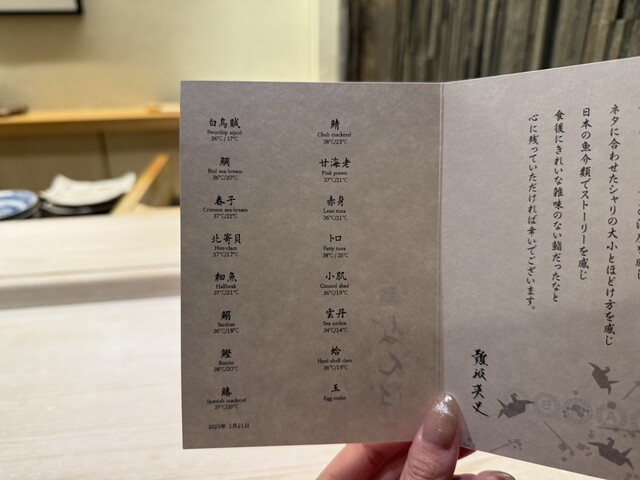 白烏賊
Swordtip squid
36℃/17℃
鯛
Red sea bream
36℃/20℃
春子
Crimson sea-bream
37℃/22℃
北寄貝
Hen-clam
37℃/17℃
細魚
Halfbeak
37℃/21℃
鰯
Sardine
36℃/18℃
鰹
Bonito
38℃/20℃
鰆
Spanish mackerel
37℃/20℃
2025年 1月21日
鯖
Chub mackerel
38℃/23℃
甘海老
Pink prawn
37℃/21℃
赤身
Lean tuna
36℃/21℃
トロ
Fatty tuna
38℃/25℃
小肌
Gizzard shad
36℃/19℃
雲丹
Sea urchin
34℃/14℃
蛤
Hard-shell clam
36℃/19℃
玉
Egg omlet
ネタに合わせたシャリの大小とほどけ方を感じ
日本の魚介類でストーリーを感じ
食後にきれいな雑味のない鮨だったなと
心に残っていただければ幸いでございます。
難波英史